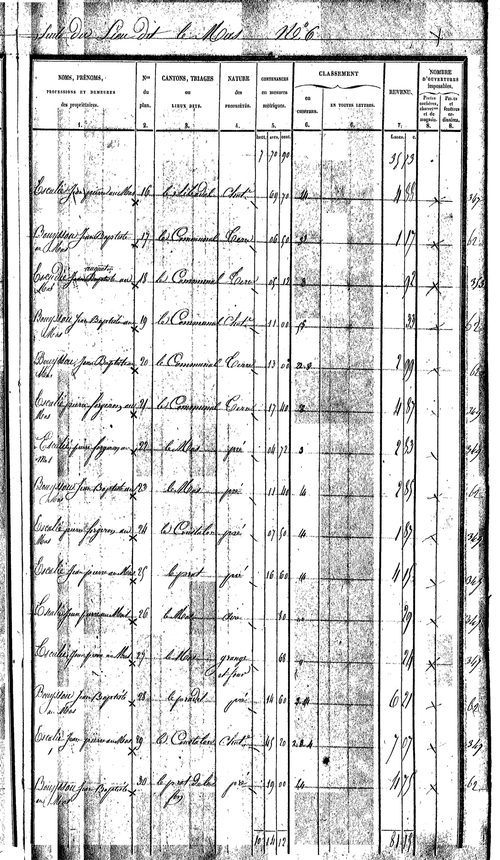 Suite du Lieu dit le Mas N.o 6
NOMS, PRÉNOMS,
PROFESSIONS ET DEMEURES
des propriétaires.
1.
Nos
du
plan.
2.
CANTONS, TRIAGES
ou
LIEUX DITS.
3.
NATURE
des
PROPRIÉTÉS.
4.
CONTENANCES
en mesures
métriques.
5.
CLASSEMENT
en
CHIFFRES.
6.
EN TOUTES LETTRES.
6.
REVENU.
7.
NOMBRE
D'OUVERTURES
imposables.
Portes
cochères,
charret.es
et de
magasin.
8.
Portes
et
fenêtres
ordinaires.
8.
hect. ares. cent. francs. c.
7 70 90 35 73
Escalié Jean pierre au Mas 16 69 70 4 4 88 347
Bouyssou Jean Baptiste 17 le Communal Terre 06 50 1 17 62
au Mas
18 le Communal Terre 05 12 3 92 353
Mas
Bouyssou Jean Baptiste au 19 le Communal 11 00 5 33 62
Mas
Bouyssou Jean Baptiste au 20 le Communal Terre 13 00 2 99 62
Mas
Escalié pierre forgeron au 21 le Communal Terre 17 40 2 4 87 349
Mas
Escalié pierre forgeron au 22 le Mas pré 04 72 3 2 53 349
Mas
Bouyssou Jean Baptiste au 23 le Mas pré 11 40 4 2 85 62
Mas
Escalié pierre forgeron au 24 pré 07 50 4 1 87 349
Mas
Escalié Jean pierre au Mas 25 le prat pré 16 60 4 4 15 347
Escalié Jean pierre au Mas 26 le Mas 80 29 347
Escalié Jean pierre au Mas 27 le Mas grange 68 24 347
et four
Bouyssou Jean Baptiste 28 le pradet pré 14 60 3.4 6 21 62
au Mas
Escalié Jean pierre au Mas 29 45 20 2.3.4 7 07 347
Bouyssou Jean Baptiste 30 pré 19 00 4 4 75 62
au Mas
10 14 12 81